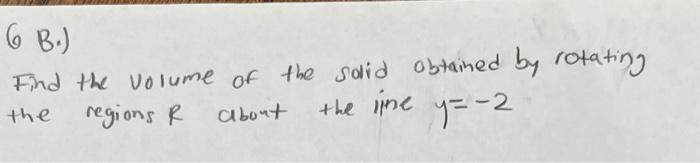 6 B.)
Find the volume of the solid obtained by rotating
the regions R about the line y=-2